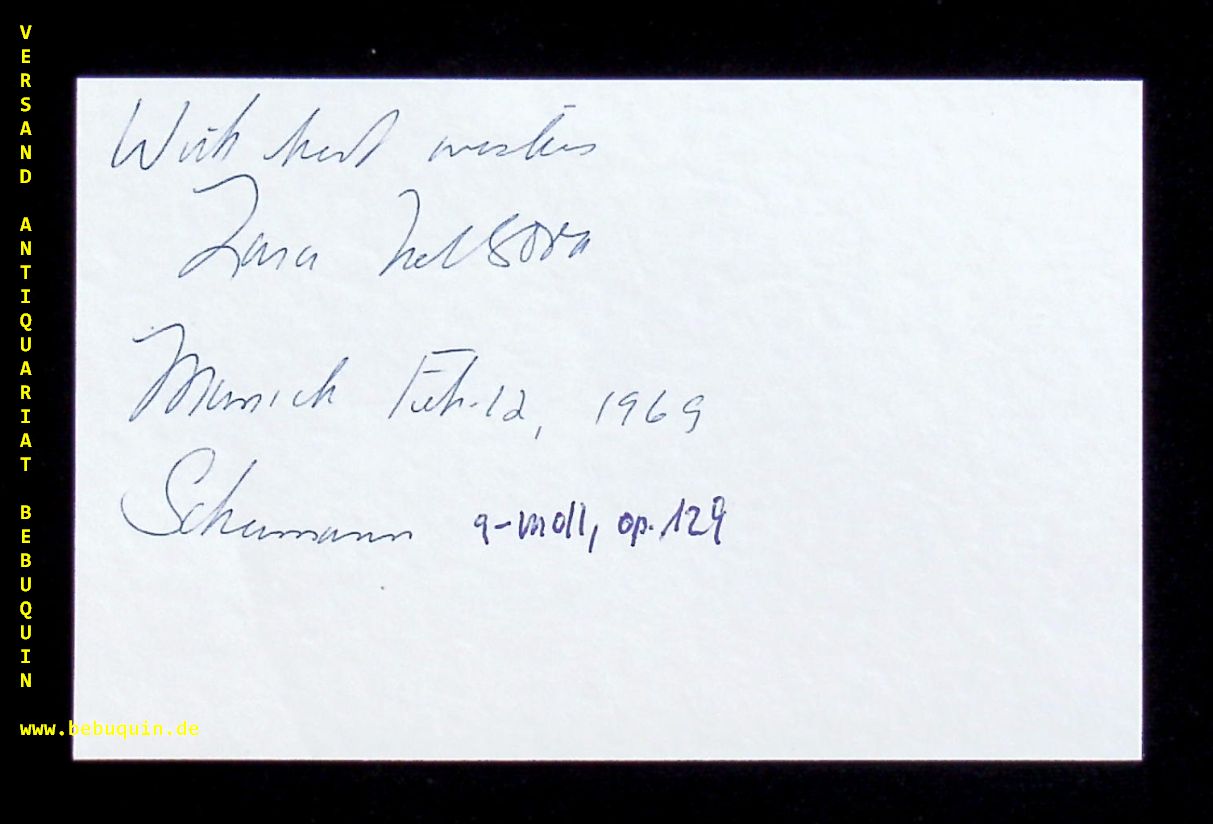 With best wishes
Zara Nelsova
Munich Feb. 12, 1969
Schumann a-moll, op. 129
VERSAND ANTIQUARIAT BEBUQUIN
www.bebuquin.de